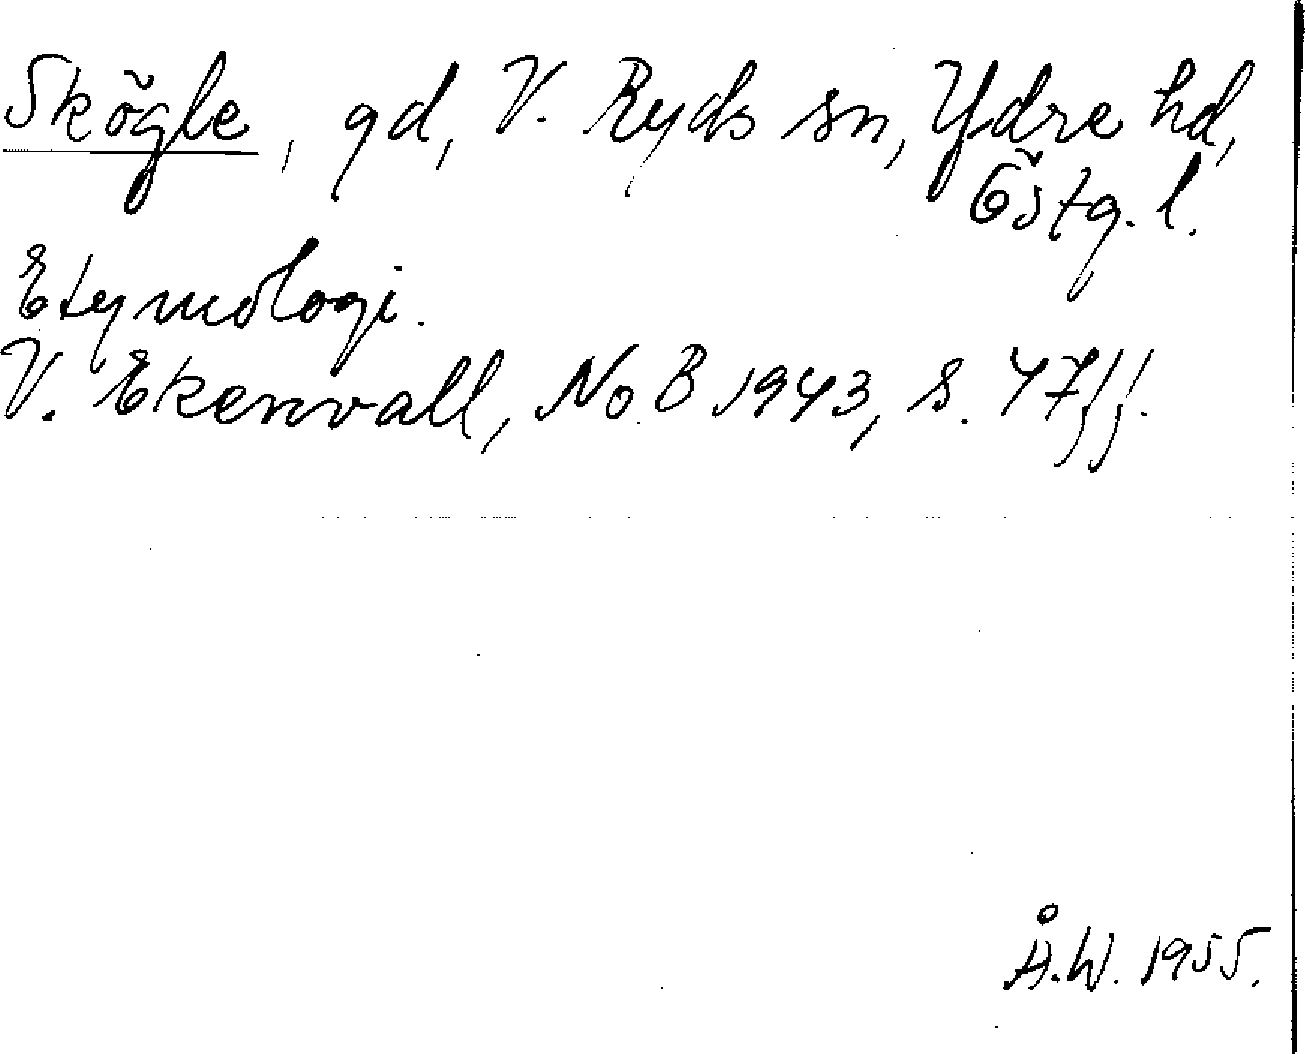 Skögle, gd, V. Ryds sn, Ydre hd,
Östg. l.
Etymologi.
V. Ekenvall, NoB 1943, s. 47ff.
Å.W. 1955.